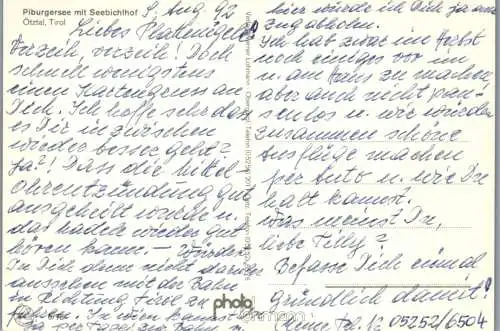 Piburgersee mit Seebichlhof
Ötztal, Tirol
9. Aug. 92
Liebes Plackenigele!
Verzeih, verzeih! Doch
schnell wenigstens
einen Kartengruss an
Dich. Ich hoffe sehr dass
es Dir inzwischen
wieder besser geht?
Ja?! Dass die Mittel-
Ohrentzündung gut
ausgeheilt wurde u.
das wieder gut
hören kann. – Würdest
Du Dich denn nicht daran
mit der Bahn
in Richtung Tirol zu
fahren. In wien kannst
hier würde ich Dich ja dann
zugabholen.
Ich hab zwar im Herbst
noch einiges vor im
u. am Haus zu machen
aber auch nicht pau-
senlos u. wir würden
zusammen schöne
Ausflüge machen
per Auto u. wie Du
halt kannst.
Was meinst Du,
liebe Tilly?
Befasse Dich einmal
gründlich damit!
05252/6504
photo
Lohmann